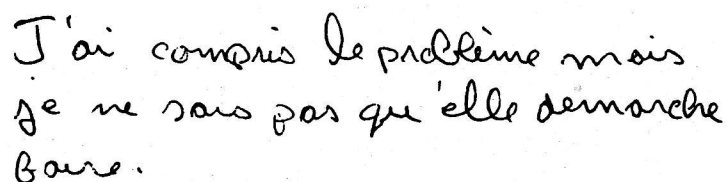 J'ai compris le problème mais
je ne sais pas qu'elle demarche
faire.